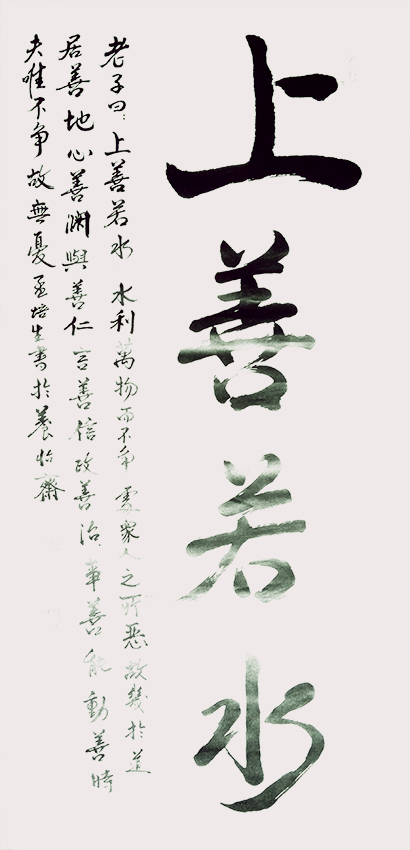 上善若水
老子曰：上善若水水利萬物而不争處眾人之所惡故幾於道
居善地心善渊與善仁言善信政善治事善能動善時
夫唯不争故無憂培生書於養怡齋